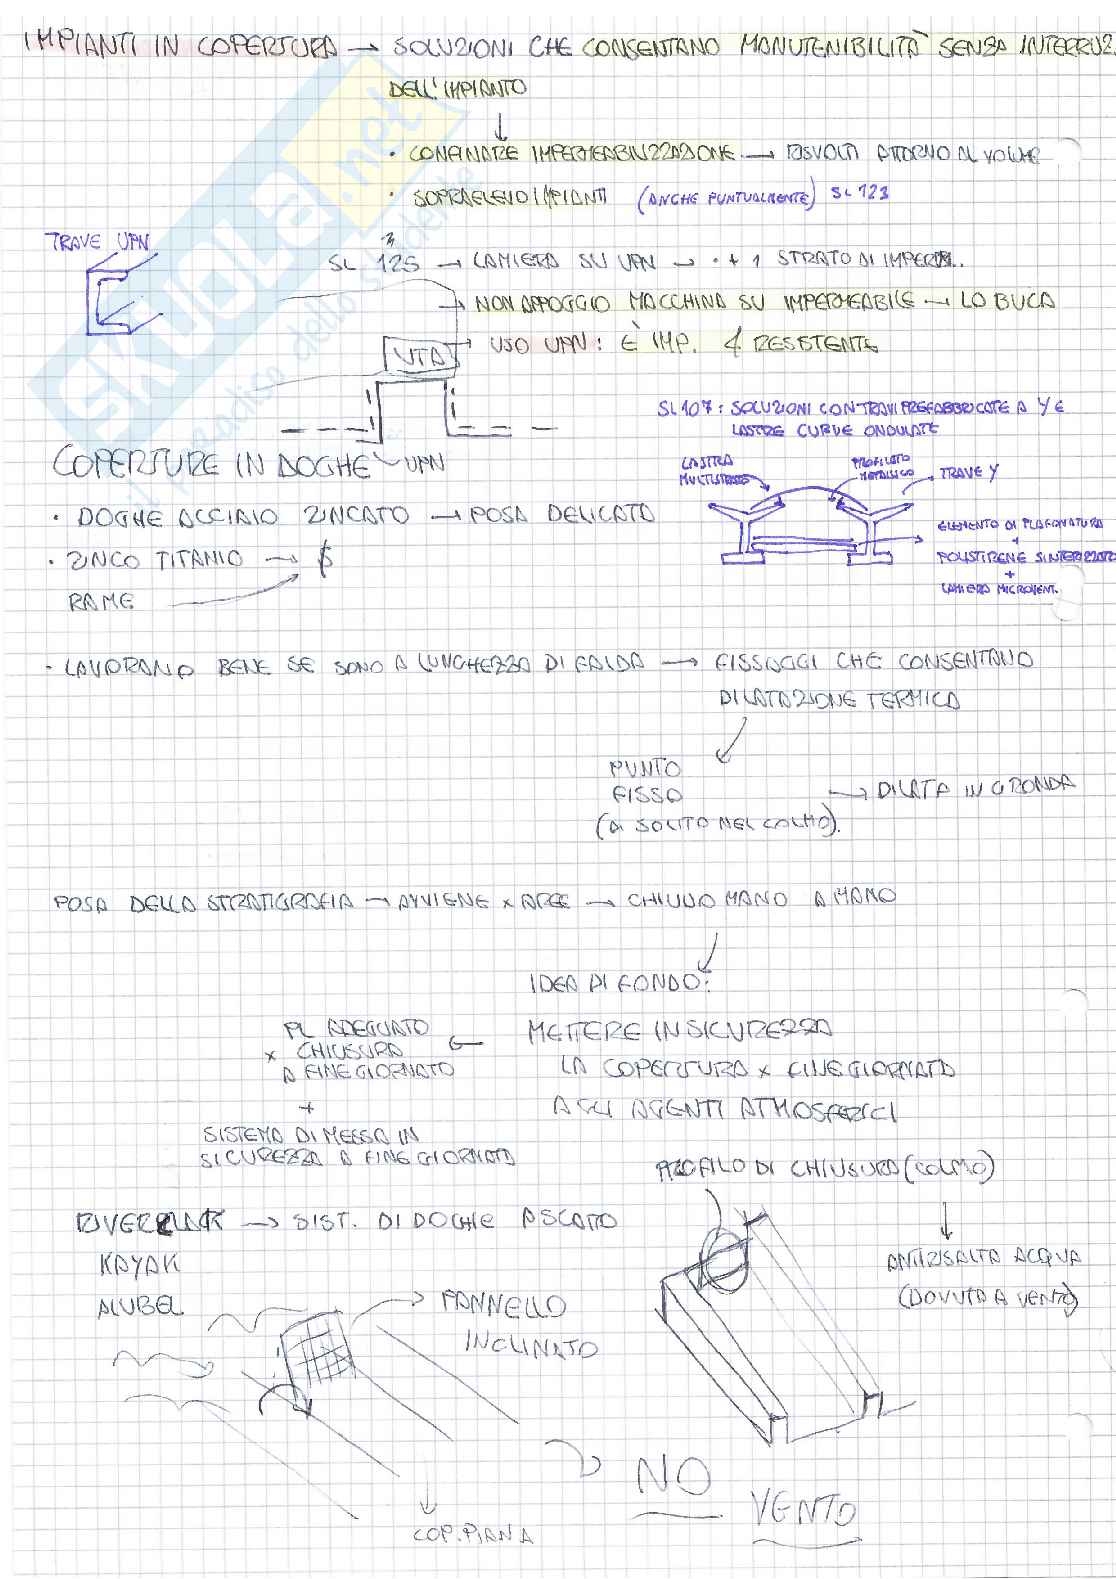 IMPIANTI IN COPERTURA → SOLUZIONI CHE CONSENTANO MANUTENIBILITÀ SENZA INTERRUZ.
DELL'IMPIANTO
• CONFINARE IMPERMEABILIZZAZIONE → RISVOLTI ATTORNO AL VOLUME
• SOPRAELEVO IMPIANTI (ANCHE PUNTUALMENTE) SL 123
TRAVE UPN
SL 125 → LAMIERA SU UPN → • + 1 STRATO DI IMPERM..
→ NON APPOGGIO MACCHINA SU IMPERMEABILE → LO BUCA
UTA → USO UPN: È IMP. RESISTENTE
SL 107: SOLUZIONI CON TRAVI PREFABBRICATE A Y E
LASTRE CURVE ONDULATE
COPERTURE IN DOGHE UPN
LASTRA MULTISTRATO
PROFILATO METALLICO
TRAVE Y
• DOGHE ACCIAIO ZINCATO → POSA DELICATA
ELEMENTO DI PLAFONATURA
+
POLISTIRENE SINTERIZZATO
+
LAMIERA MICROVENT.
• ZINCO TITANIO → $
RAME
• LAVORANO BENE SE SONO A LUNGHEZZA DI FALDA → FISSAGGI CHE CONSENTANO
DILATAZIONE TERMICA
PUNTO
FISSO → DILATA IN GRONDA
(DI SOLITO NEL COLMO).
POSA DELLA STRATIGRAFIA → AVVIENE x AREE → CHIUDO MANO A MANO
IDEA DI FONDO:
METTERE IN SICUREZZA
LA COPERTURA x FINE GIORNATA
AGLI AGENTI ATMOSFERICI
PL ADEGUATO
x CHIUSURA
A FINE GIORNATA
+
SISTEMA DI MESSA IN
SICUREZZA A FINE GIORNATA
PROFILO DI CHIUSURA (COLMO)
RIVERCLACK → SIST. DI DOGHE A SCATTO
KAYAK
ALUBEL
ANTIRISALTA ACQUA
(DOVUTA A VENTO)
PANNELLO
INCLINATO
NO
VENTO
COP. PIANA
SKUOLA.net
il paradiso dello studente